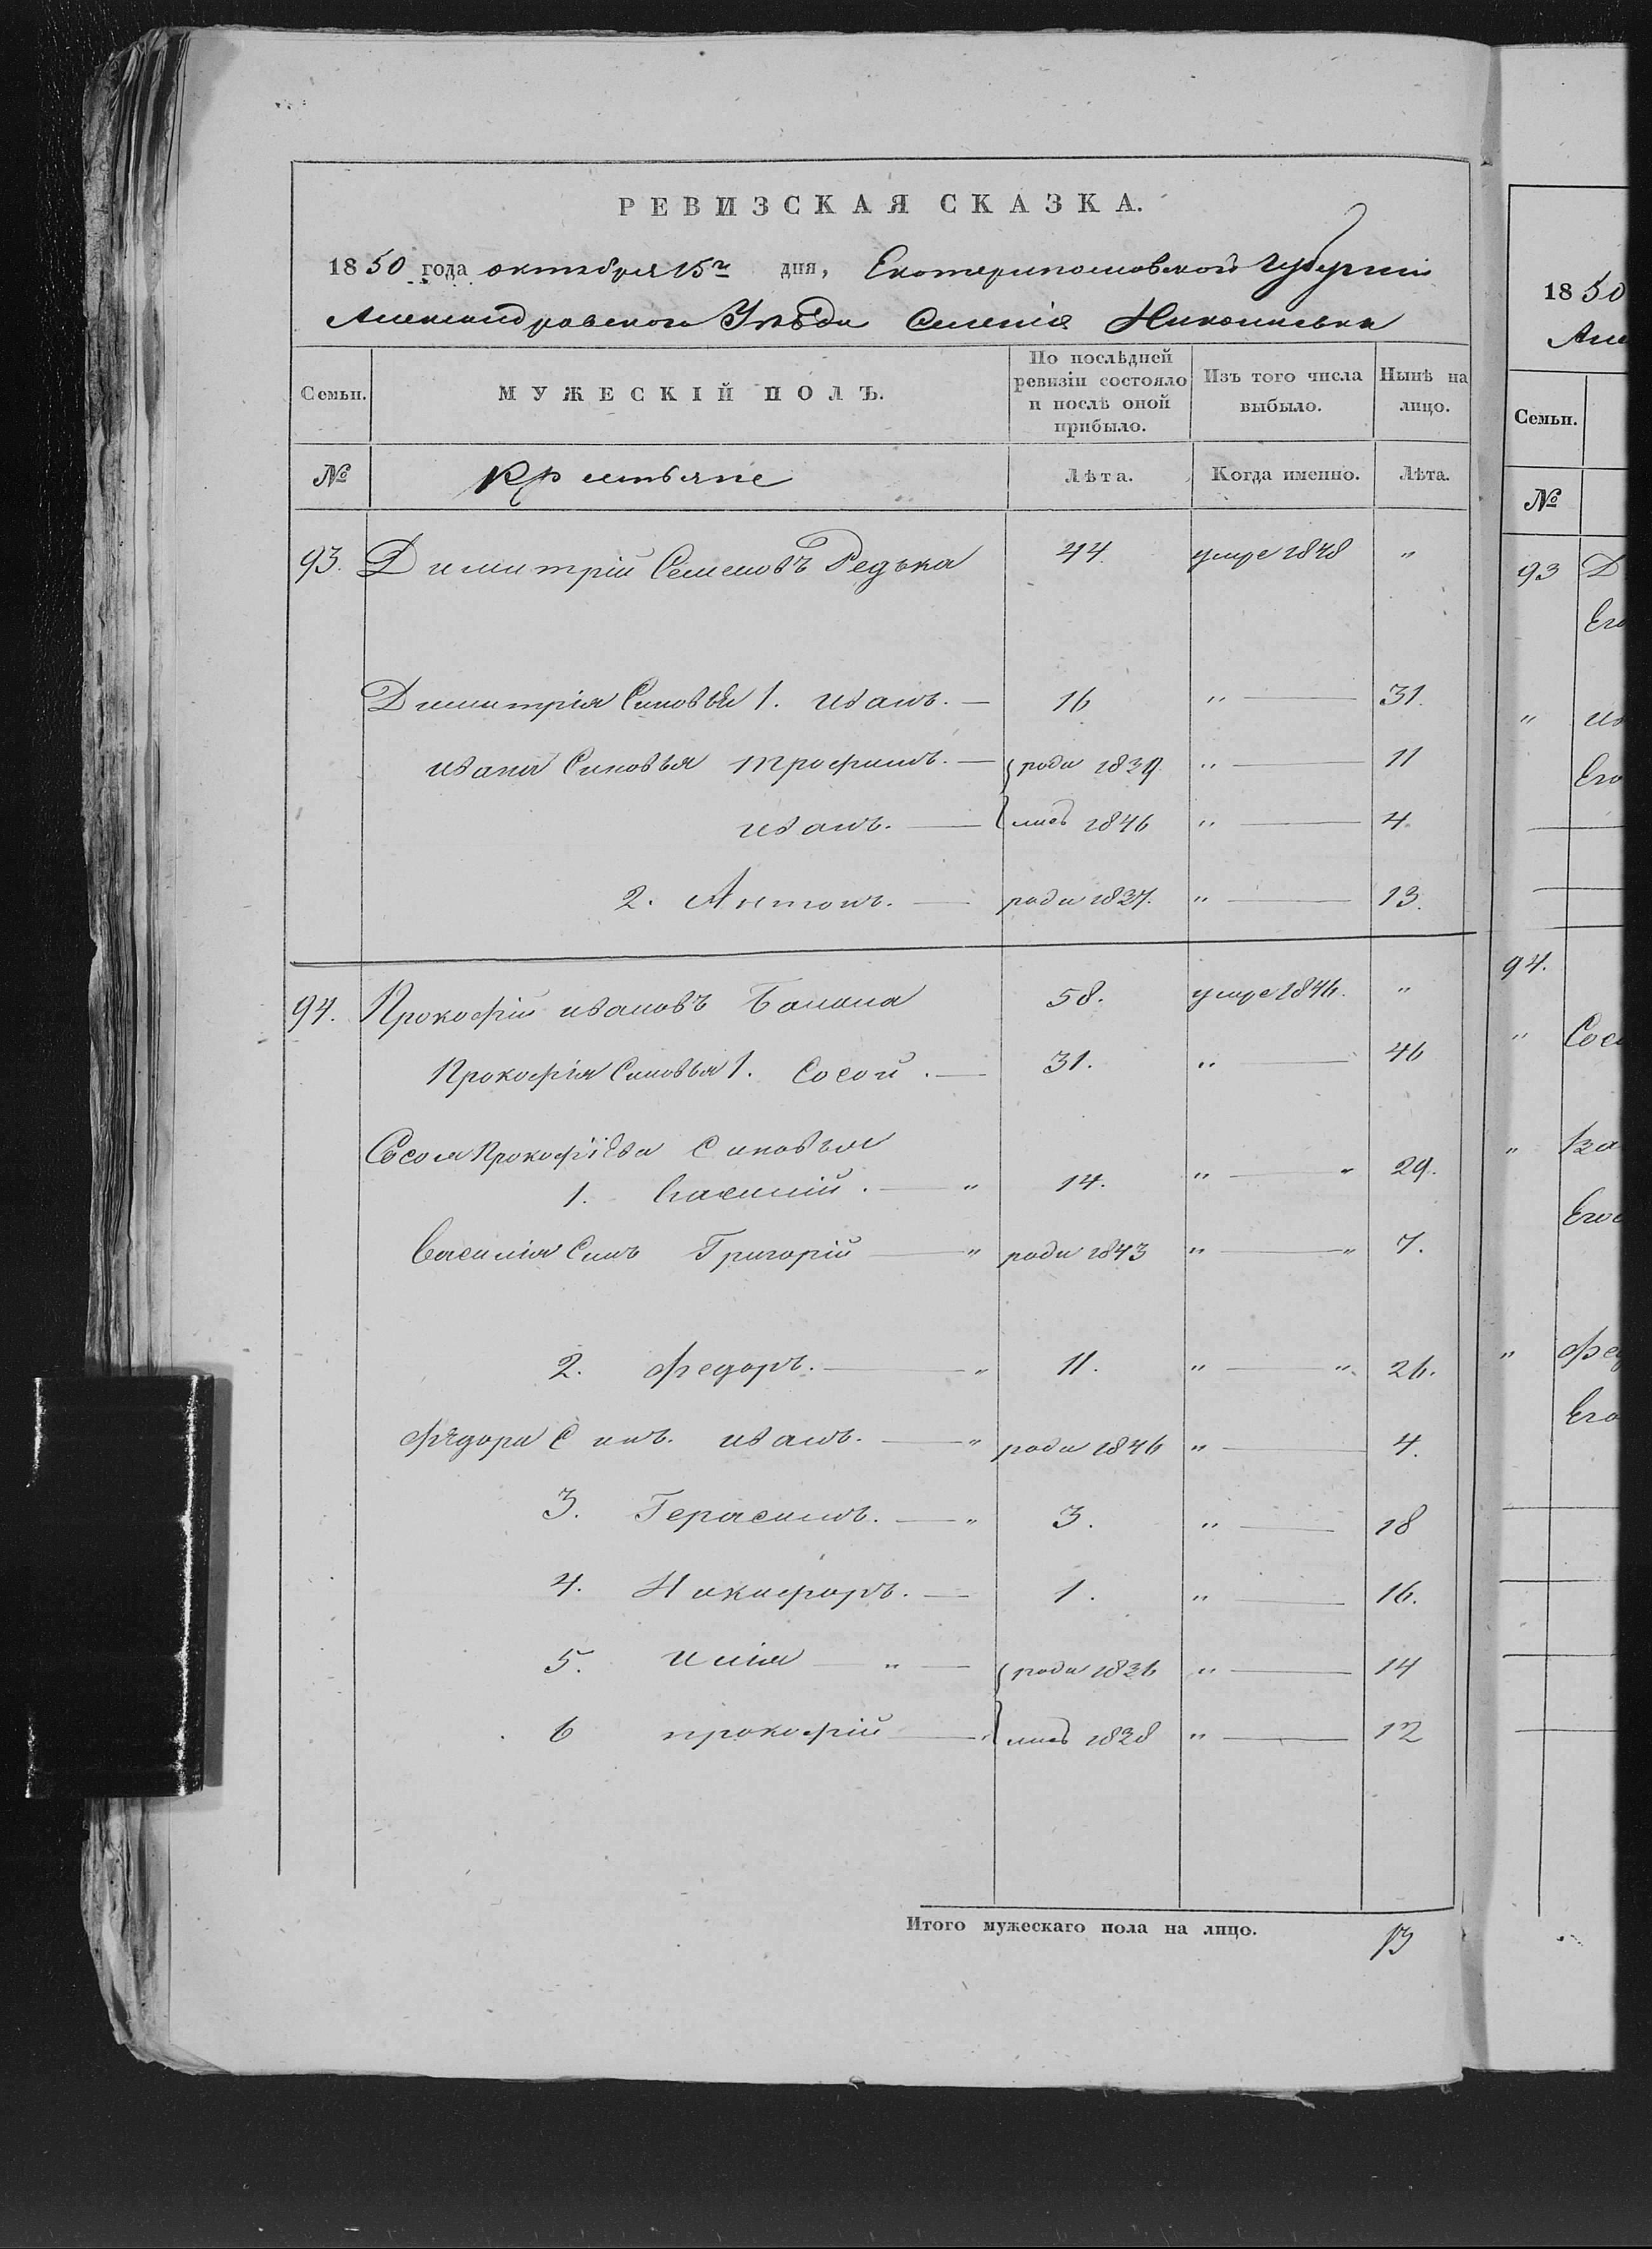 РЕВИЗСКАЯ СКАЗКА.
1850 года октября 15го дня, Екатеринославской Губерніи
Александровского Уѣзда Селенія Николаевка
Семьи. МУЖЕСКІЙ ПОЛЪ. По послѣдней ревизіи состояло и послѣ оной прибыло. Изъ того числа выбыло. Нынѣ на лицо.
№ Крестьяне Лѣта. Когда именно. Лѣта.
93. Димитрій Семеновъ Редька 44. умре 1848 "
Димитрія Синовья 1. иванъ. — 16 " — 31.
ивана Синовья трофимъ. — роди 1839 " — 11
иванъ. — лись 1846 " — 4.
2. Антонъ. — роди 1837. " — 13.
94. Прокофій ивановъ 58. умре 1846. "
Прокофія Синовья 1. Сосой. — 31. " — 46
Сосоя Прокофіева Синовья
1. Василій. — " 14. " — " 29.
Василія Синъ Григорій — " роди 1843 " — " 7.
2. федоръ. — " 11. " — " 26.
фѣдора Синъ. иванъ. — " роди 1846 " — 4.
3. Герасимъ. — " 3. " — 18
4. Никифоръ. — 1. " — 16.
5. илія — " — роди 1836 " — 14
6 прокофій — " лись 1838 " — 12
Итого мужескаго пола на лицо. 13
1850
Але
Семьи.
№
93 Д
Его
" ив
Его
94.
" Сос
" Ва
Его
" фед
Его